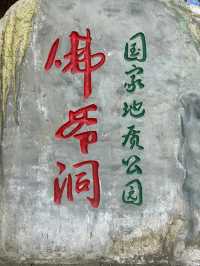 国家地质公园
佛爷洞